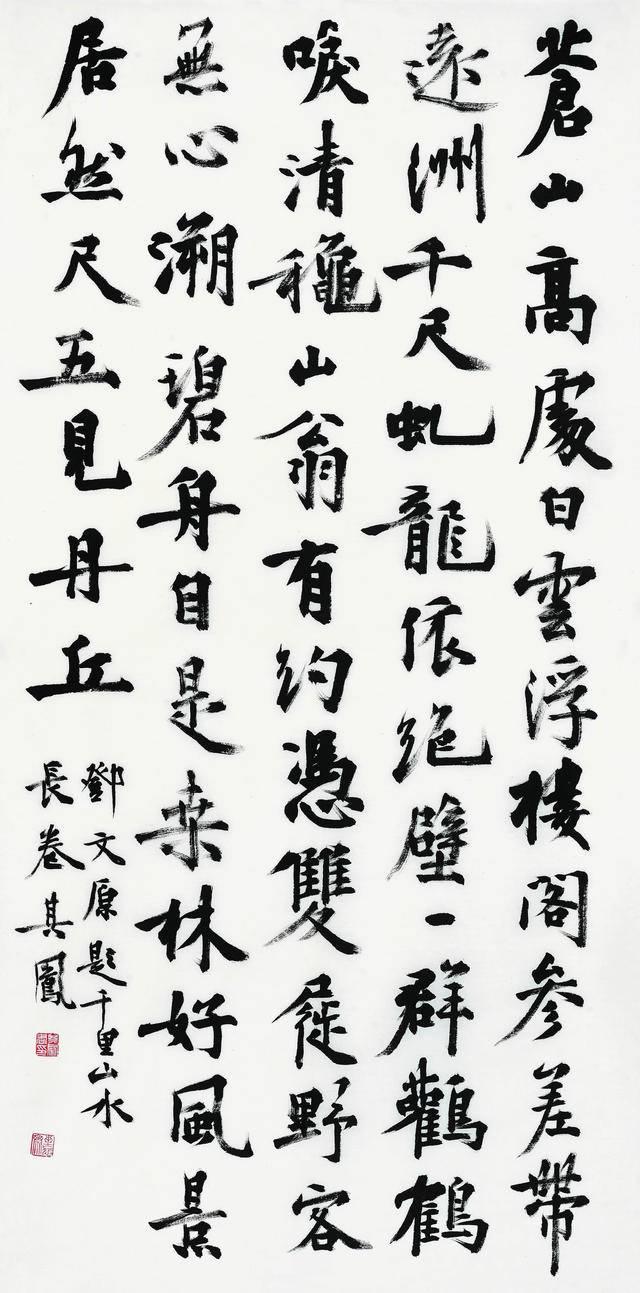 蒼山髙處白雲浮樓閣參差帶
遠洲千尺虬龍依絕壁一群鸛鶴
唳清穐山翁有約憑雙屐野客
無心溯碧舟自是桒林好風景
居然尺五見丹丘
鄧文原題千里山水
長卷其鳳